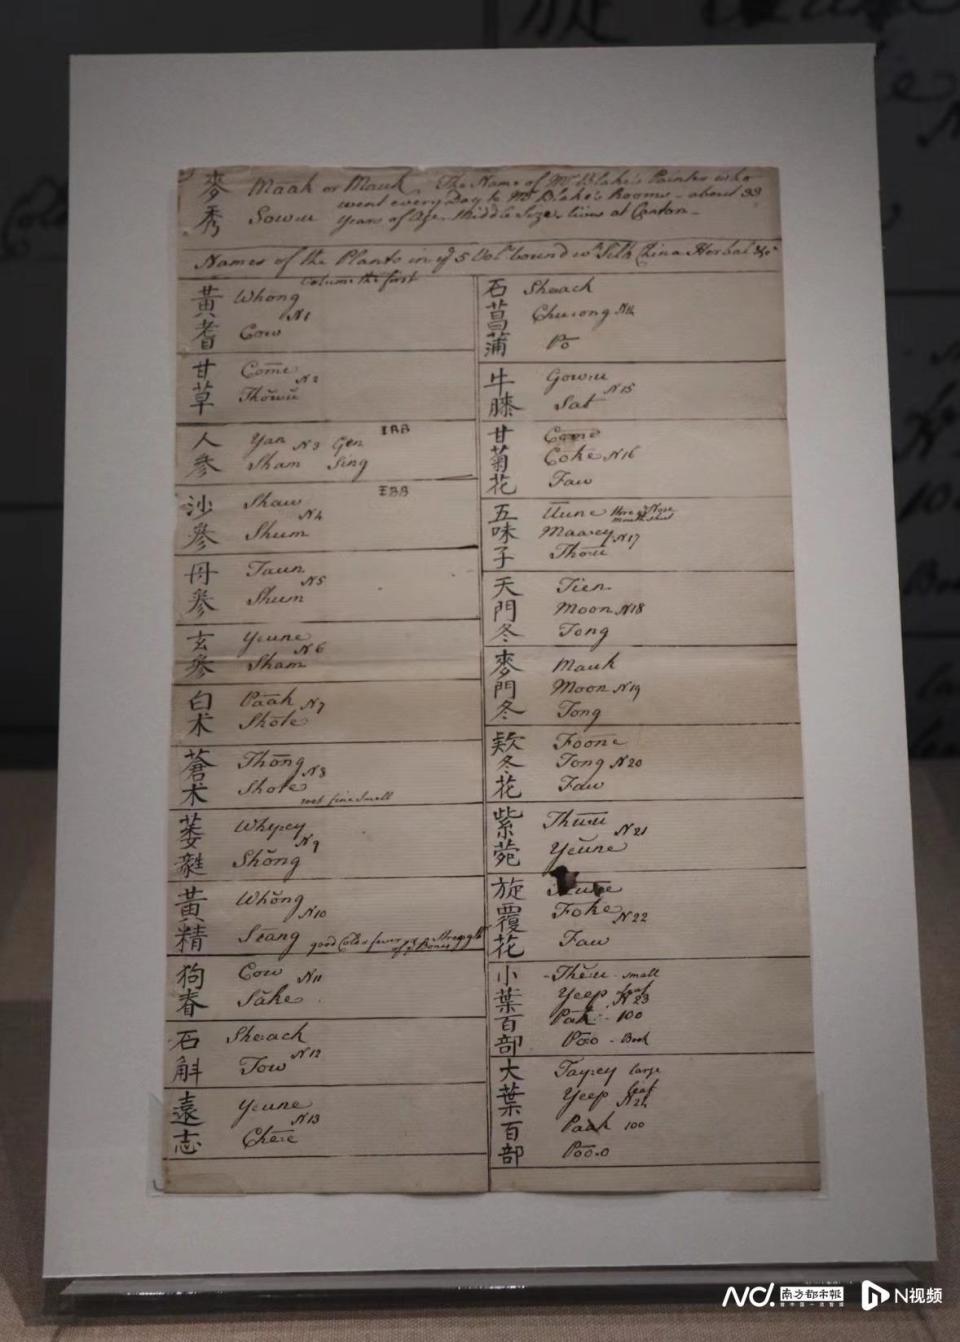 麥秀
Maak or Mauk The Name of Mr Blake's Painter who
went every Day to Mr Blake's Rooms - about 33
Sowu Years of Age - Middle Size, lives at Canton -
Names of the Plants in ye 5 Vol. bound wh Silk China Herbal &c
Volume the first
黃耆
Whong
N1
Cow
甘草
Come
N2
Thowu
人參
Yan N3 Gen
Sham Sing
IBB
沙參
Shaw
N4
Shum
IBB
丹參
Taun
N5
Shum
玄參
Yeune
N6
Sham
白术
Paak N7
Shote
蒼术
Thong
N8
Shote
root fine small
萎蕤
Whypey
N9
Shong
黃精
Whong
N10
Seang
good Cold fever
狗脊
Cow N11
Sake
石斛
Sheack
N12
Tow
遠志
Yeune
N13
Chere
石菖蒲
Sheack
Cheong N14
Po
牛膝
Gowu
N15
Sat
甘菊花
Come
Coke N16
Faw
五味子
Uune
Maarey N17
Thou
天門冬
Tien
Moon N18
Tong
麥門冬
Mauk
Moon N19
Tong
欵冬花
Foone
Tong N20
Faw
紫菀
Thuu
N21
Yeune
旋覆花
Foke N22
Faw
小葉百部
Theu - small
Yeep leaf
N23
Paak 100
Poo - Book
大葉百部
Taypey large
Yeep leaf
N24
Paak 100
Poo.o
N视频
南方都市報